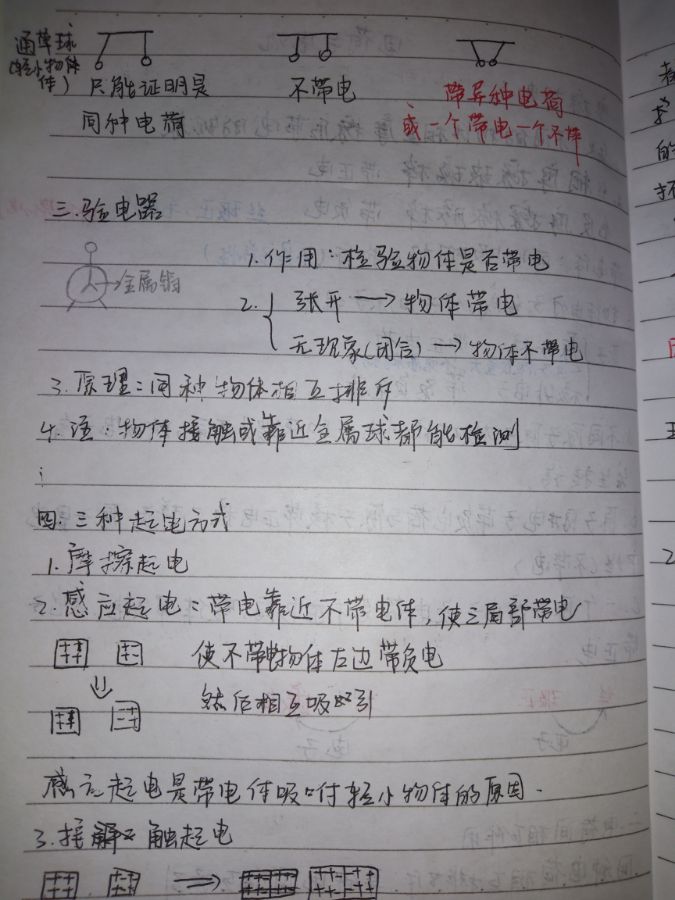 通草球
(轻小物体
体)
只能证明是
同种电荷
不带电
带异种电荷
或一个带电一个不带
三.验电器
→金属箔
1.作用:检验物体是否带电
2. { 张开→物体带电
无现象(闭合)→物体不带电
3.原理:同种物体相互排斥
4.注:物体接触或靠近金属球都能检测
四.三种起电方式
1.摩擦起电
2.感应起电:带电靠近不带电体,使之局部带电
使不带电物体左边带负电
然后相互吸引
感应起电是带电体吸附轻小物体的原因.
3.接触起电